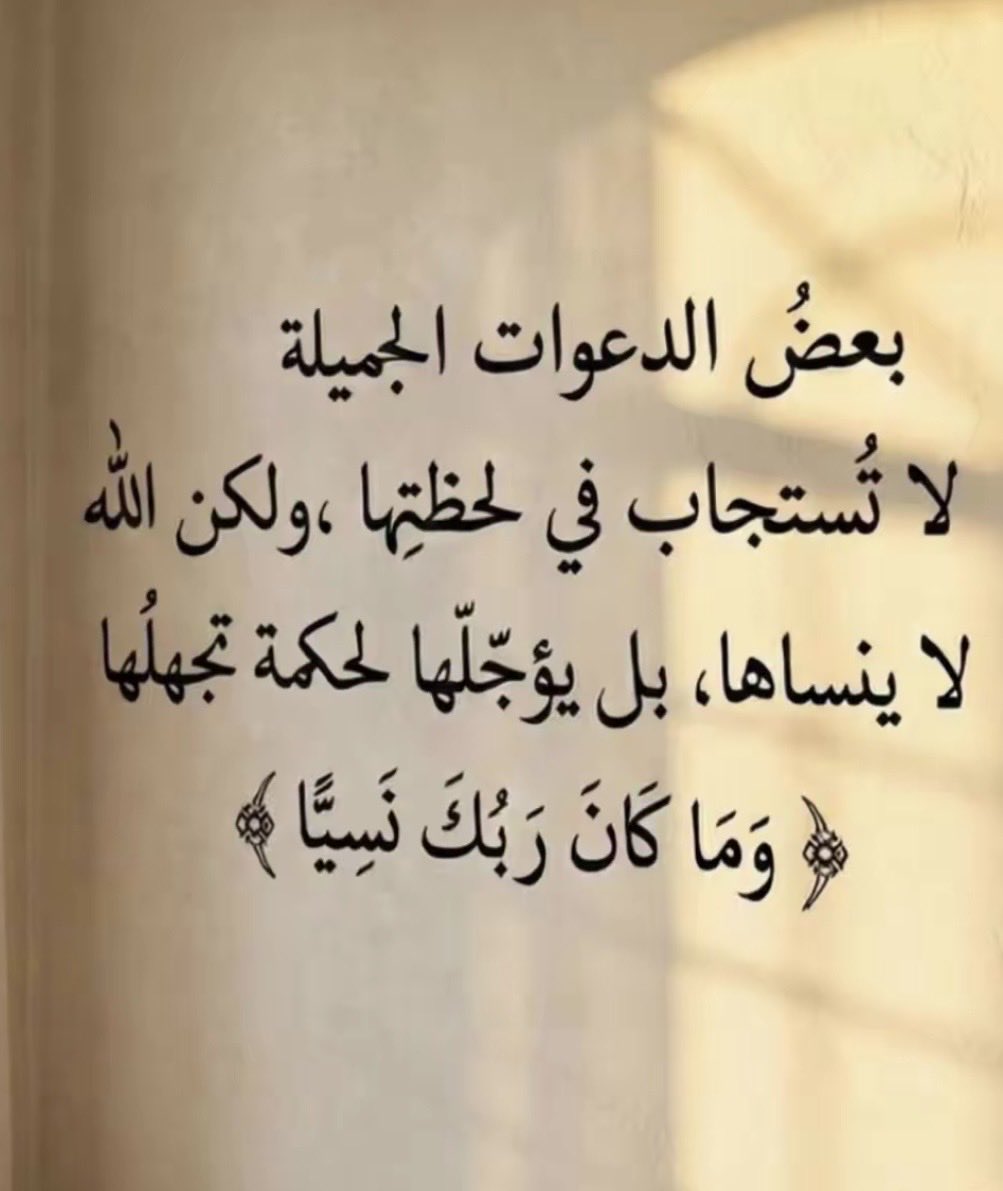 بعضُ الدعوات الجميلة
لا تُستجاب في لحظتِها ،ولكن الله
لا ينساها، بل يؤجّلّها لحكمة تجهلُها
﴿ وَمَا كَانَ رَبُكَ نَسِيًّا ﴾